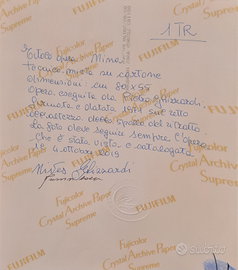 1 TR
Titolo opera Mine
tecnica mista su cartone
dimensioni cm 80x55
opera eseguita da Pietro Ghizzardi
firmata e datata 1974 sul retto
La foto deve seguire sempre l'opera
che è stata vista e catalogata
16 ottobre 2019
Ghizzardi
FUJIFILM
Fujicolor
Crystal Archive Paper
Supreme
subito